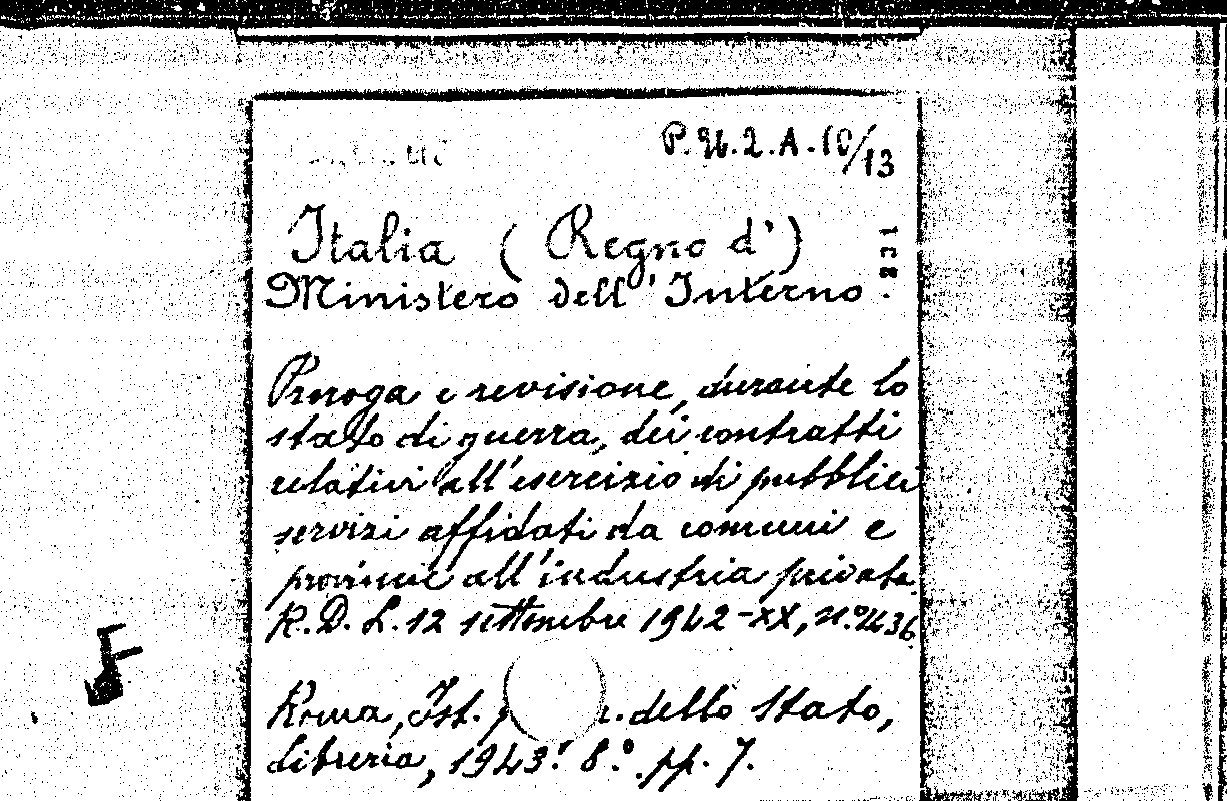 P.96.2.A.10/13
Italia (Regno d')
Ministero dell'Interno.
Proroga e revisione, durante lo
stato di guerra, dei contratti
relativi all'esercizio di pubblici
servizi affidati da comuni e
provincie all'industria privata.
R.D.L. 12 settembre 1942-XX, n.º1436
Roma, Ist. dello Stato,
Libreria, 1943. 8.º pp. 7.